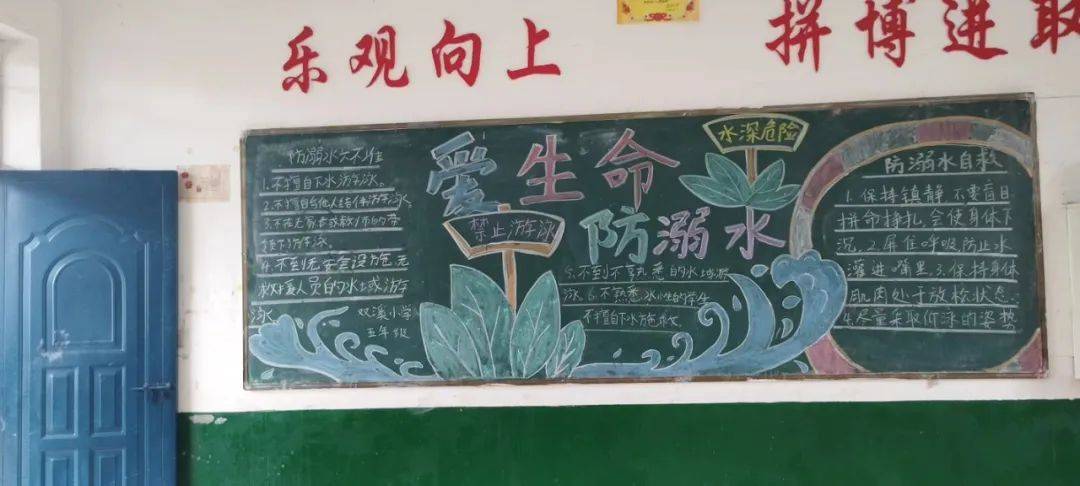 乐观向上
拼搏进取
防溺水六不准
1.不擅自下水游泳.
2.不擅自与他人结伴游泳.
3.不在无家长或教师的带
领下游泳.
4.不到无安全设施,无
救援人员的水域游
泳
双溪小学
五年级
爱生命
防溺水
禁止游泳
水深危险
5.不到不熟悉的水域游
泳.6.不熟悉水性的学生
不擅自下水施救.
防溺水自救
1.保持镇静不要盲目
拼命挣扎,会使身体下
沉.2.屏住呼吸防止水
灌进嘴里.3.保持身体
肌肉处于放松状态.
4.尽量采取仰泳的姿势